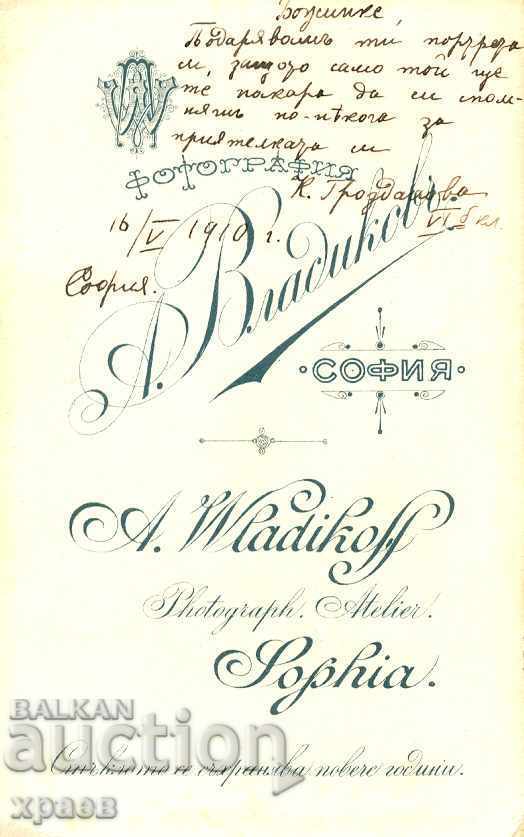 Божике,
Подарявамъ ти портрета
си, защото само той ще
те накара да си спом-
няшъ по-нѣкога за
приятелката си
К. Грозданова
VI кл.
16/V 1910 г.
София.
ФОТОГРАФИЯ
А. Владиковъ.
СОФИЯ
A. Wladikoff
Photograph. Atelier.
Sophia.
Стъклото се съхранява повече години.
BALKAN
auction
храев